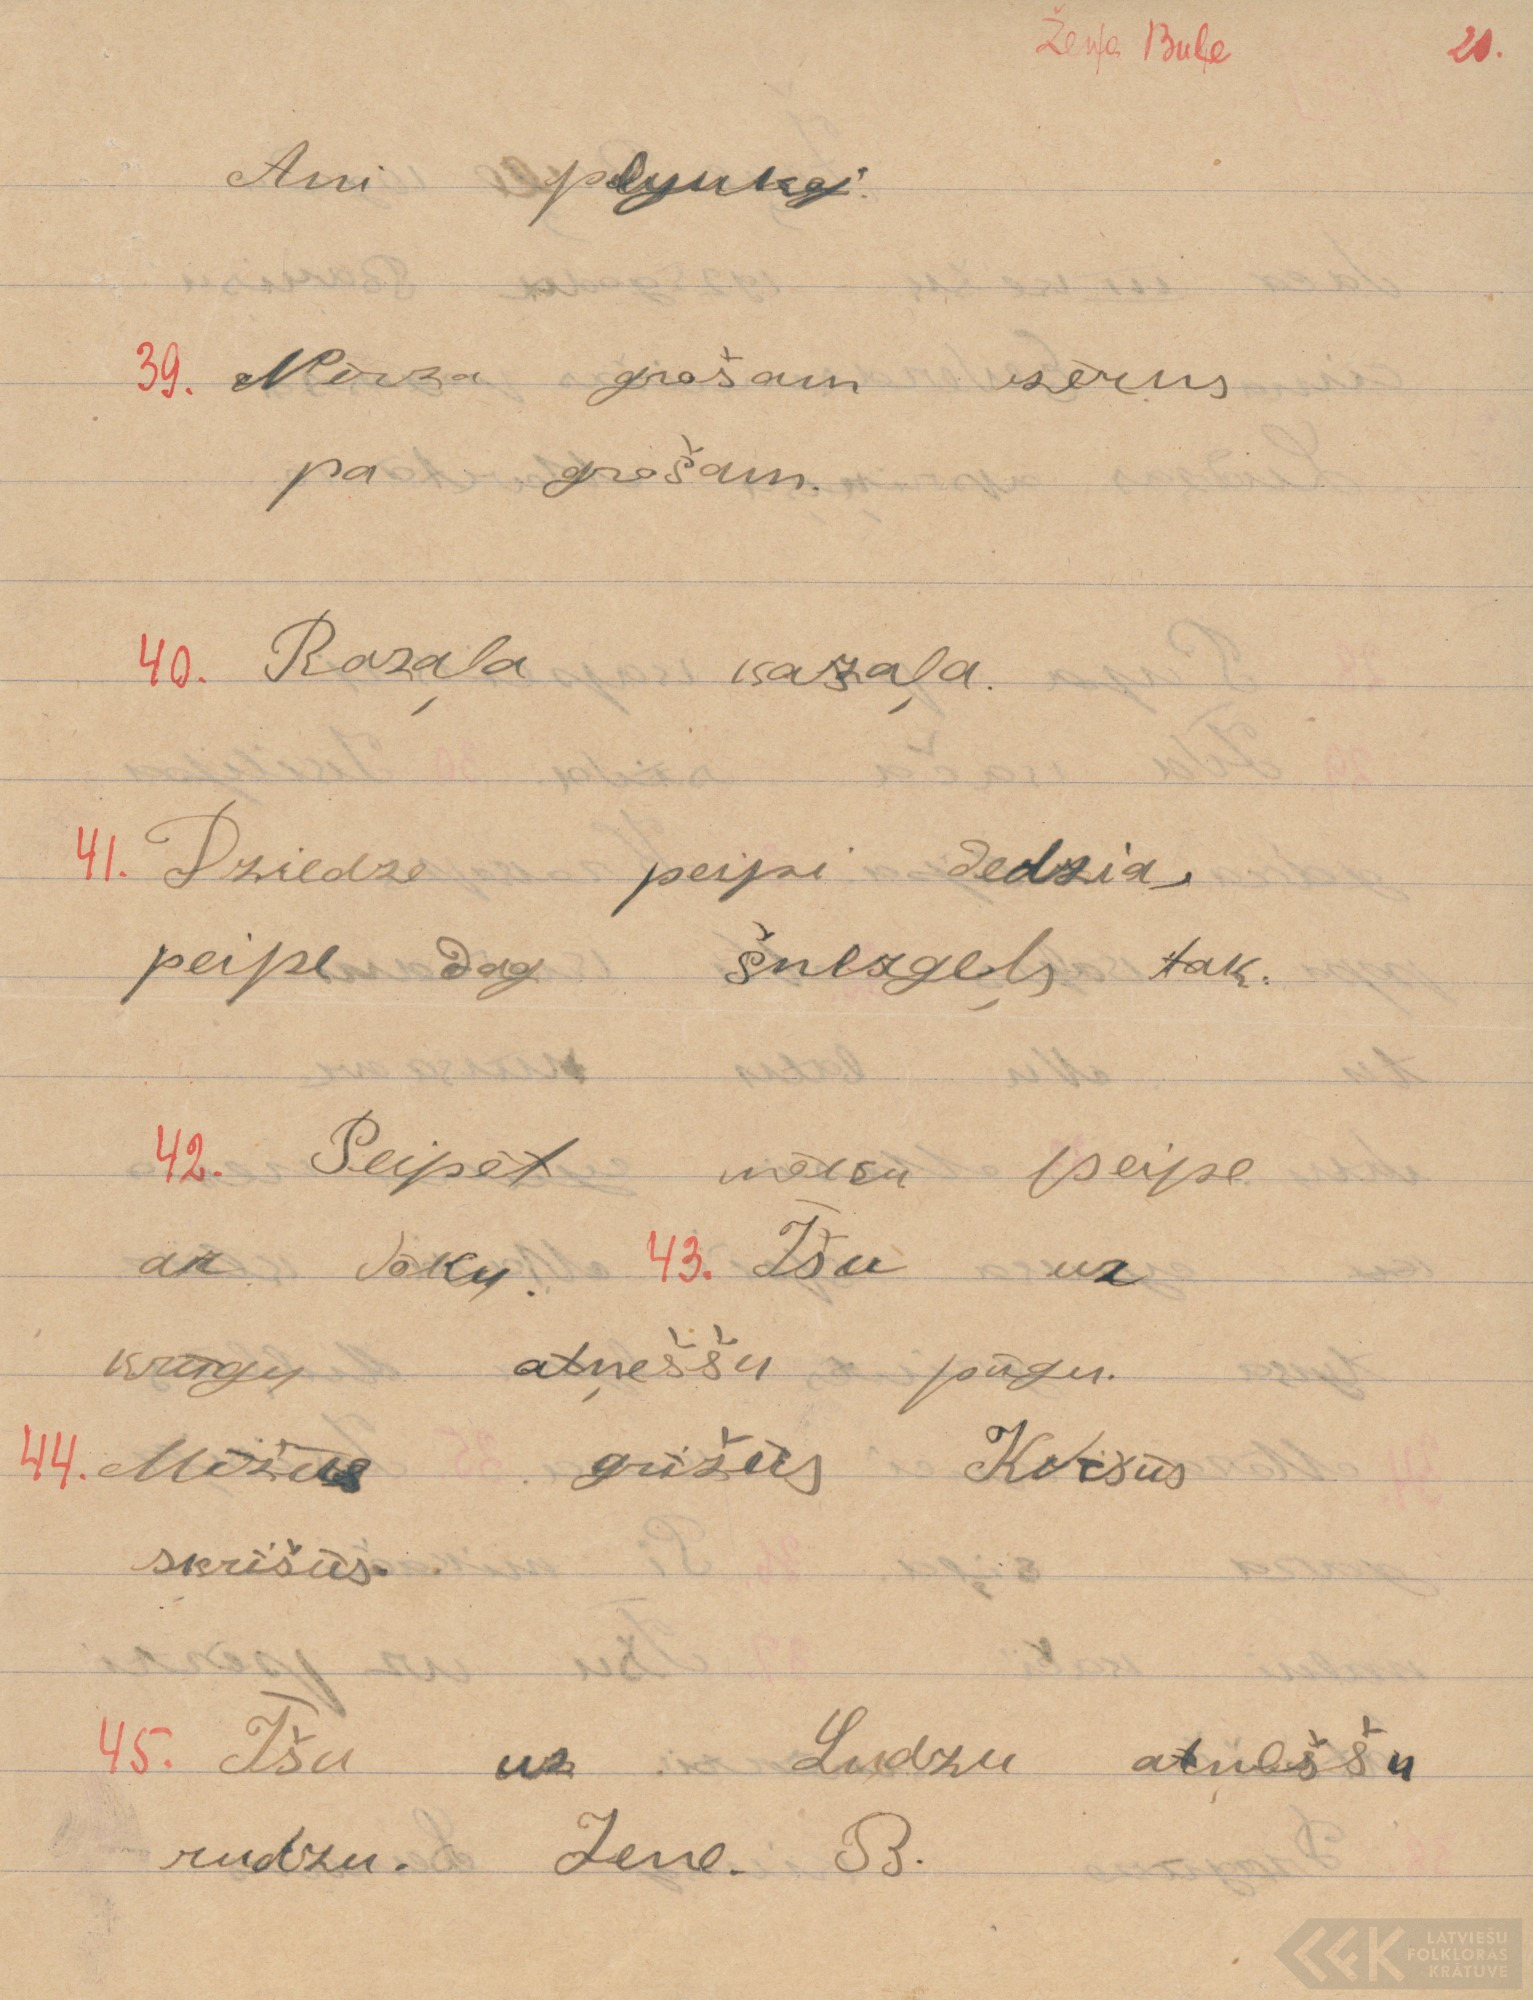 Ženja Buļe 20.
Ani plyukgi.
39. Mērza grošam vērus
pa grošam.
40. Razaļa kazaļa.
41. Dziedze peipi dedzia,
peipe dag šnezgeļs tak.
42. Peipēt māku peipe
ar voku. 43. Īšu uz
krūgu atņeššu pūgu.
44. Mēžūs grīžūs Krišūs
skrišūs.
45. Īšu uz Ludzu atņeššu
rudzu. Zene. B.
LATVIEŠU
FOLKLORAS
KRĀTUVE